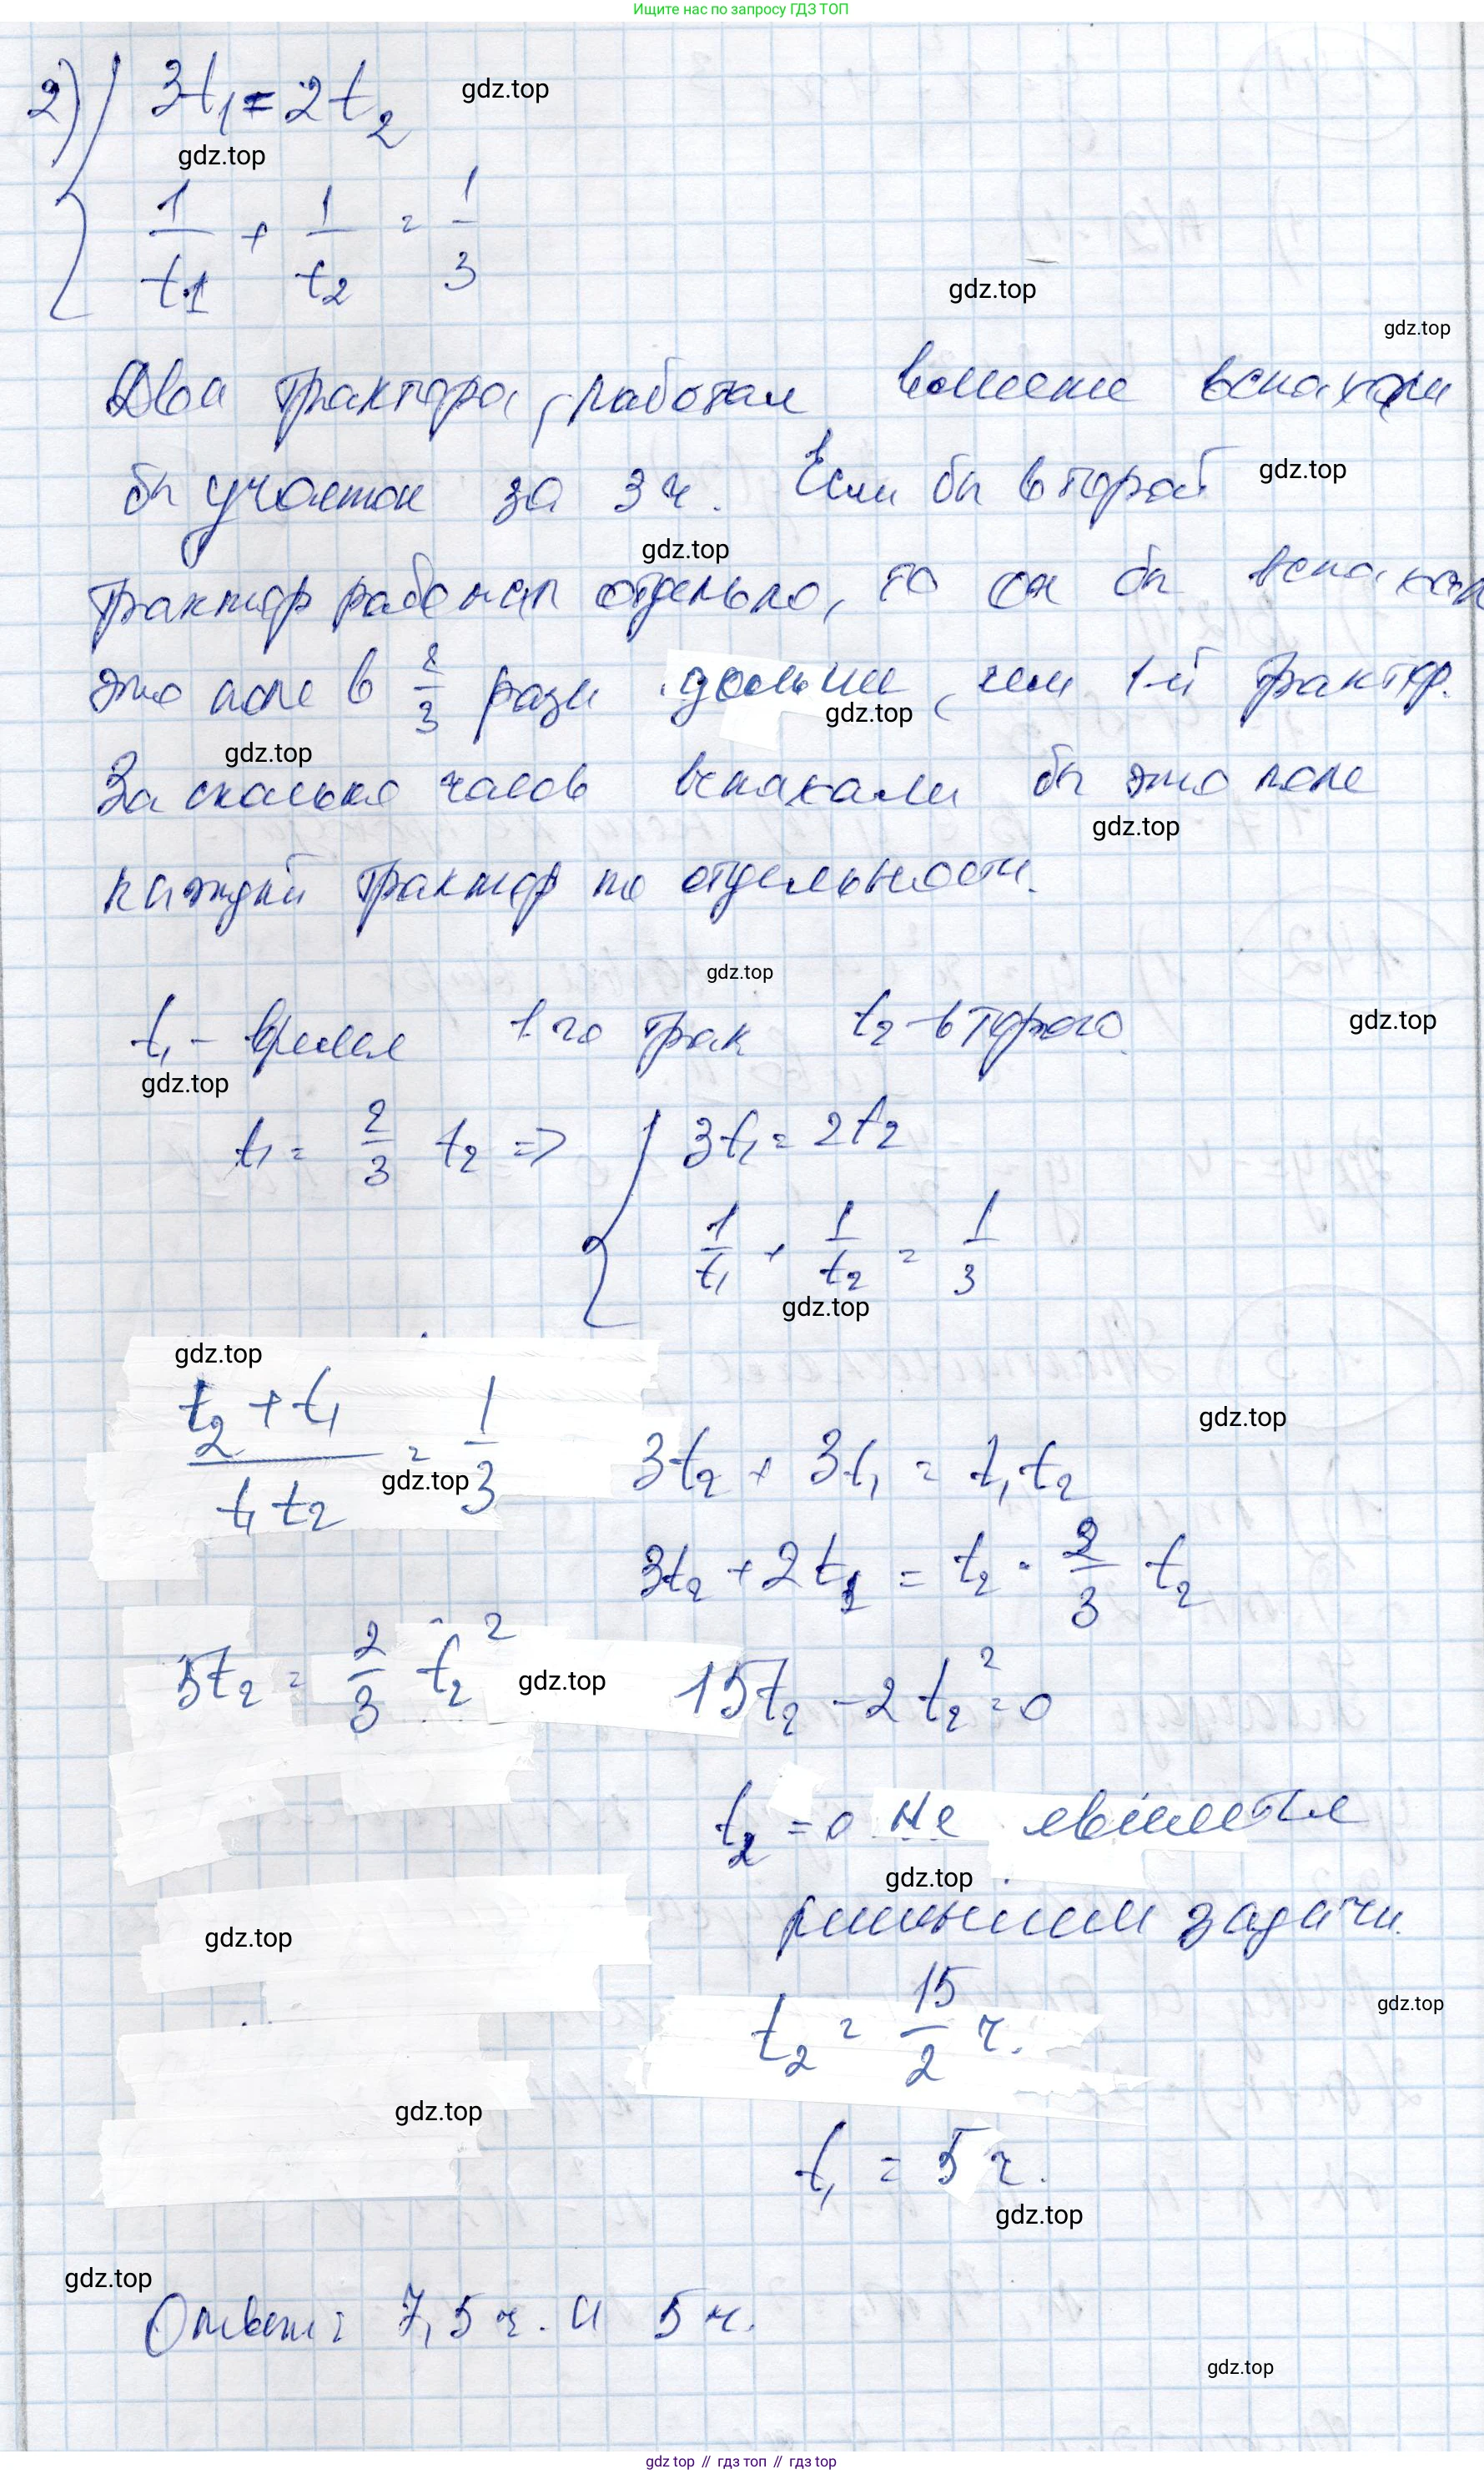 Ищите нас по запросу ГДЗ ТОП
2) { 3t₁ = 2t₂
gdz.top
gdz.top
1/t₁ + 1/t₂ = 1/3
gdz.top
gdz.top
Два трактора, работая вместе вспахали
бы участок за 3 ч. Если бы второй
gdz.top
gdz.top
трактор работал отдельно, то он бы вспахал
это поле в 2/3 раза дольше, чем 1-й трактор.
gdz.top
gdz.top
За сколько часов вспахали бы это поле
gdz.top
каждый трактор по отдельности.
gdz.top
t₁ - время 1го трак t₂ - второго.
gdz.top
gdz.top
t₁ = 2/3 t₂ => { 3t₁ = 2t₂
1/t₁ + 1/t₂ = 1/3
gdz.top
gdz.top
(t₂ + t₁)/(t₁ t₂) = 1/3
gdz.top
gdz.top
3t₂ + 3t₁ = t₁t₂
3t₂ + 2t₂ = t₂ · 2/3 t₂
5t₂ = 2/3 t₂²
gdz.top
15t₂ - 2t₂² = 0
t₂ = 0 не является
gdz.top
решением задачи.
gdz.top
t₂ = 15/2 ч.
gdz.top
gdz.top
t₁ = 5 ч.
gdz.top
gdz.top
Ответ: 7,5 ч. и 5 ч.
gdz.top
gdz top // гдз топ // гдз top